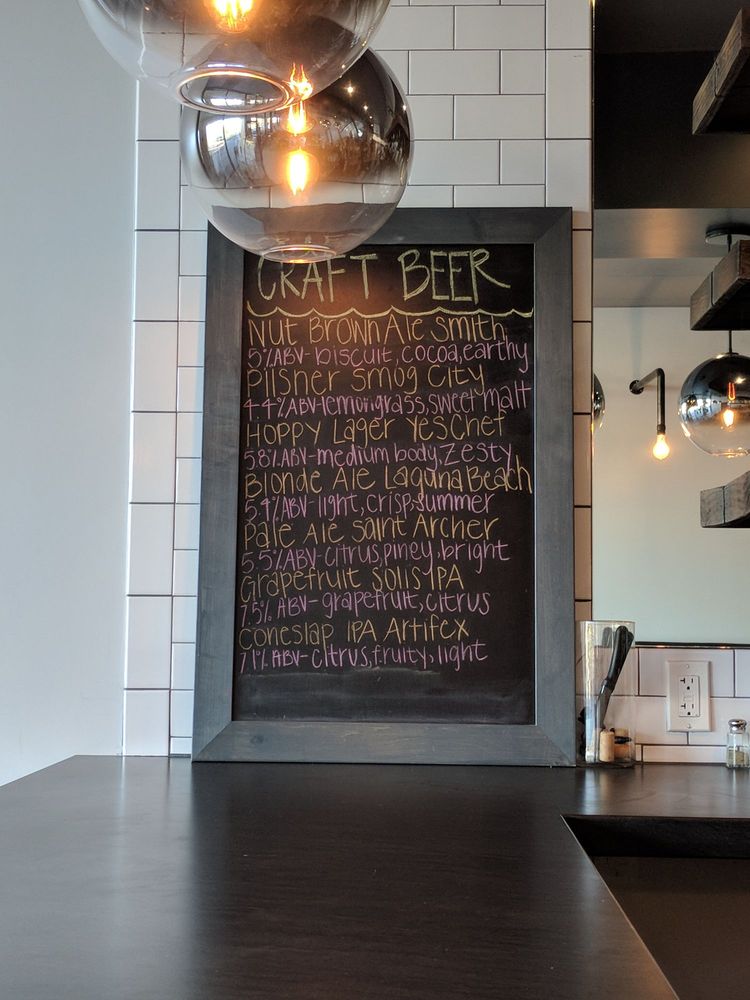 CRAFT BEER
Nut Brown Ale Smith
5%ABV-biscuit, cocoa, earthy
Pilsner Smog City
4.4%ABV-lemongrass, sweet malt
Hoppy Lager Yes Chef
5.8%ABV-medium body, zesty
Blonde Ale Laguna Beach
5.4%ABV-light, crisp, summer
Pale Ale Saint Archer
5.5%ABV-citrus, piney, bright
Grapefruit Solis IPA
7.5% ABV-grapefruit, citrus
Coneslap IPA Artifex
7.1% ABV-citrus, fruity, light